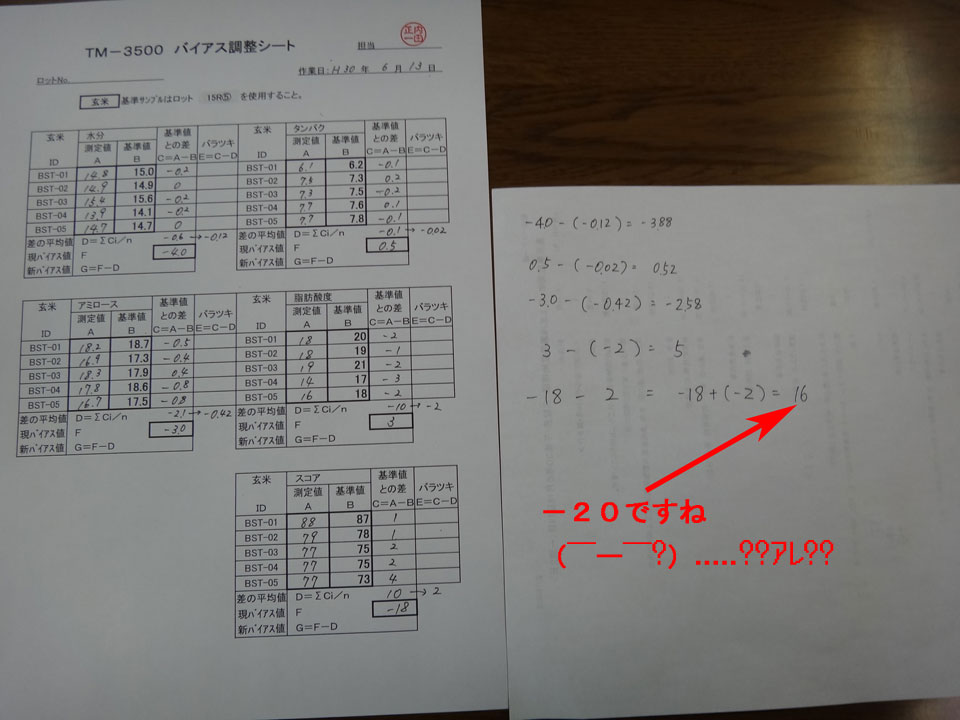 TM－3500 バイアス調整シート
担当
正内一田
ロットNo.
作業日：H30 年 6 月 13 日
玄米 基準サンプルはロット 15R⑤ を使用すること。
玄米 水分 基準値との差 バラツキ
ID 測定値 A 基準値 B C＝A－B E＝C－D
BST-01 14.8 15.0 -0.2
BST-02 14.9 14.9 0
BST-03 15.4 15.6 -0.2
BST-04 13.9 14.1 -0.2
BST-05 14.7 14.7 0
差の平均値 D＝ΣCi/n -0.6 → -0.12
現バイアス値 F -4.0
新バイアス値 G＝F－D
玄米 タンパク 基準値との差 バラツキ
ID 測定値 A 基準値 B C＝A－B E＝C－D
BST-01 6.1 6.2 -0.1
BST-02 7.5 7.3 0.2
BST-03 7.3 7.5 -0.2
BST-04 7.7 7.6 0.1
BST-05 7.7 7.8 -0.1
差の平均値 D＝ΣCi/n -0.1 → -0.02
現バイアス値 F 0.5
新バイアス値 G＝F－D
玄米 アミロース 基準値との差 バラツキ
ID 測定値 A 基準値 B C＝A－B E＝C－D
BST-01 18.2 18.7 -0.5
BST-02 16.9 17.3 -0.4
BST-03 18.3 17.9 0.4
BST-04 17.8 18.6 -0.8
BST-05 16.7 17.5 -0.8
差の平均値 D＝ΣCi/n -2.1 → -0.42
現バイアス値 F -3.0
新バイアス値 G＝F－D
玄米 脂肪酸度 基準値との差 バラツキ
ID 測定値 A 基準値 B C＝A－B E＝C－D
BST-01 18 20 -2
BST-02 18 19 -1
BST-03 19 21 -2
BST-04 14 17 -3
BST-05 16 18 -2
差の平均値 D＝ΣCi/n -10 → -2
現バイアス値 F 3
新バイアス値 G＝F－D
玄米 スコア 基準値との差 バラツキ
ID 測定値 A 基準値 B C＝A－B E＝C－D
BST-01 88 87 1
BST-02 79 78 1
BST-03 77 75 2
BST-04 77 75 2
BST-05 77 73 4
差の平均値 D＝ΣCi/n 10 → 2
現バイアス値 F -18
新バイアス値 G＝F－D
-4.0 - (-0.12) = -3.88
0.5 - (-0.02) = 0.52
-3.0 - (-0.42) = -2.58
3 - (-2) = 5
-18 - 2 = -18 + (-2) = 16
－２０ですね
(￣ー￣?).....??ｱﾚ??